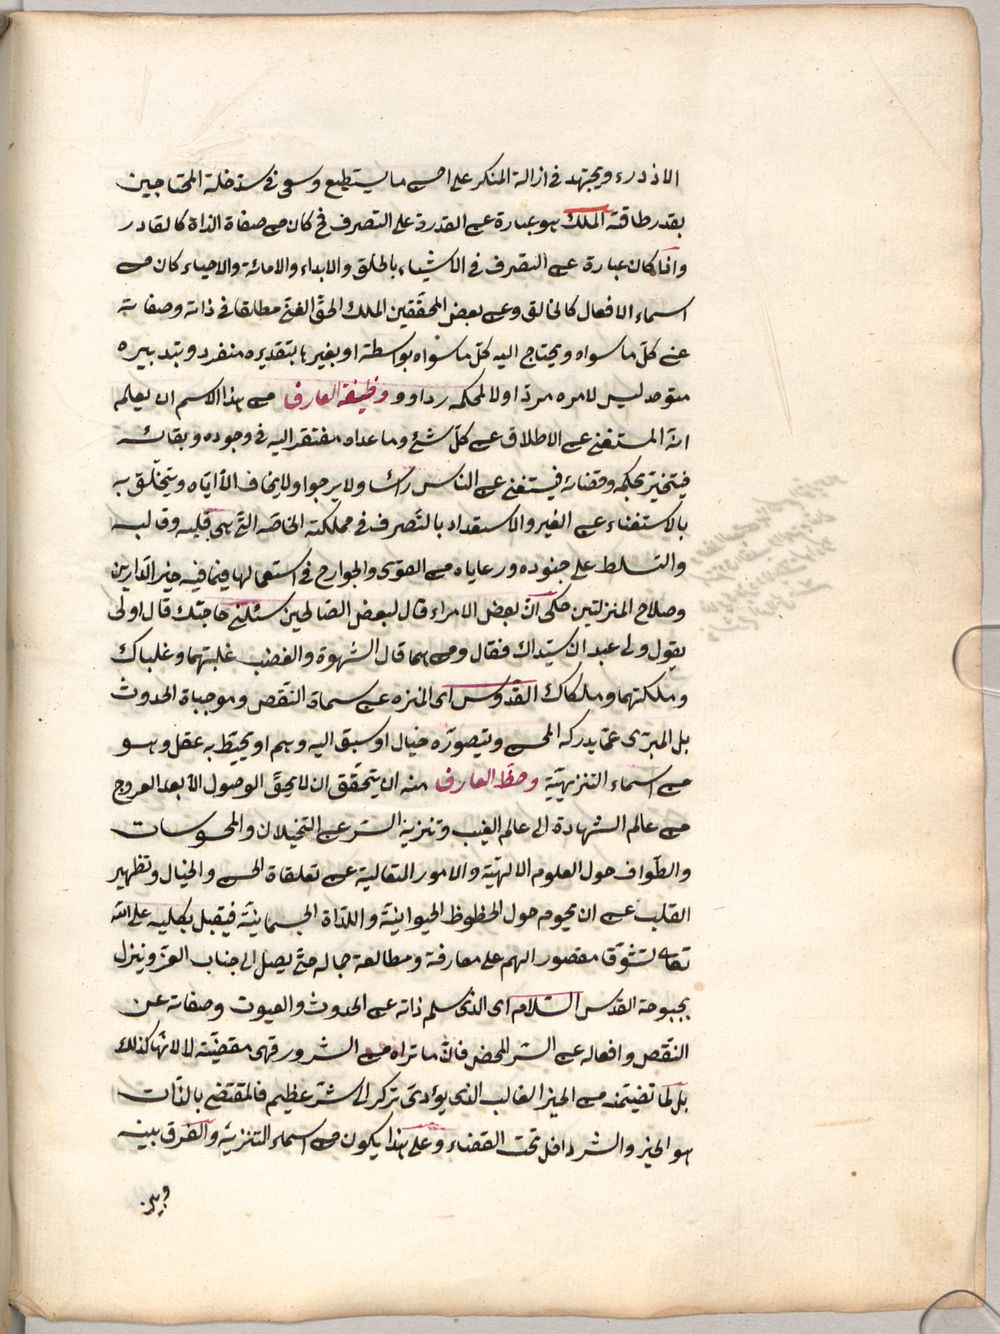 الاذدراء ويجتهد في ازالة المنكر على احسن ما يستطيع وسعى في سد خلة المحتاجين
بقدر طاقته الملك هو عبارة عن القدرة على التصرف فح كان من صفاة الذاة كالقادر
واذا كان عبارة عن التصرف في الاشياء بالخلق والابداء والاماتة والاحياء كان من
اسماء الافعال كالخالق وعن بعض المحققين الملك الحق الغني مطلقا في ذاته وصفاته
عن كل ما سواه ويحتاج اليه كل ما سواه بواسطة او بغيرها بتقديره منفرد وبتدبيره
متوحد ليس لامره مرد اولا لحكمه رد اوو وظيفة العارف من هذا الاسم ان يعلم
انه المستغني على الاطلاق عن كل شئ وما عداه مفتقر اليه في وجوده وبقائه
فيتخير بحكمه وقضائه فيستغني عن الناس راسا ولا يرجوا ولا يخاف الا اياه ويتخلق به
بالاستغناء عن الغير والاستقداد بالتصرف في مملكته الخاصة التي هي قلبه وقالبه
والتسلط على جنوده ورعاياه من القوى والجوارح في استعمالها فيما فيه خير الدارين
وصلاح المنزلتين حكى ان بعض الامراء قال لبعض الصالحين سئلني حاجتك قال اولى
يقول ولي عبدان سيداك فقال ومن هما قال الشهوة والغضب غلبتهما وغلباك
وملكتهما وملكاك القدوس اى المنزه عن سماة النقص وموجباة الحدوث
بل المبرئ عما يدركه الحس ويتصوره خيال او سبق اليه وهم او يحيط به عقل وهو
من اسماء التنزيهية وحظ العارف منه ان يتحقق ان لا يحق الوصول الا بعد العروج
من عالم الشهادة الى عالم الغيب وتنزيه السر عن التخيلان والمحسوسات
والطواف حول العلوم الالهية والامور التعالية عن تعلقاة الحس والخيال وتظهير
القلب عن ان يحوم حول الحظوظ الحيوانية واللذاة الجسمانية فيقبل بكليه على الله
تعالى تشوقا مقصور الهم على معارفة ومطالعة جماله حتى يصل الى جناب العز وينزل
بحبوحة القدس السلام اى الذى سلم ذاته عن الحدوث والعيوت وصفاته عن
النقص وافعاله عن الشر المحض فان ما تراه من الشرور فهي مقضية لا لانها كذلك
بل لما تضمنه من الخير الغالب الذى يؤدى تركه الى شر عظيم فالمقتضى بالذات
هو الخير والشر داخل تحت القضاء وعلى هذا يكون من اسماء التنزيه والفرق بينه
وبين